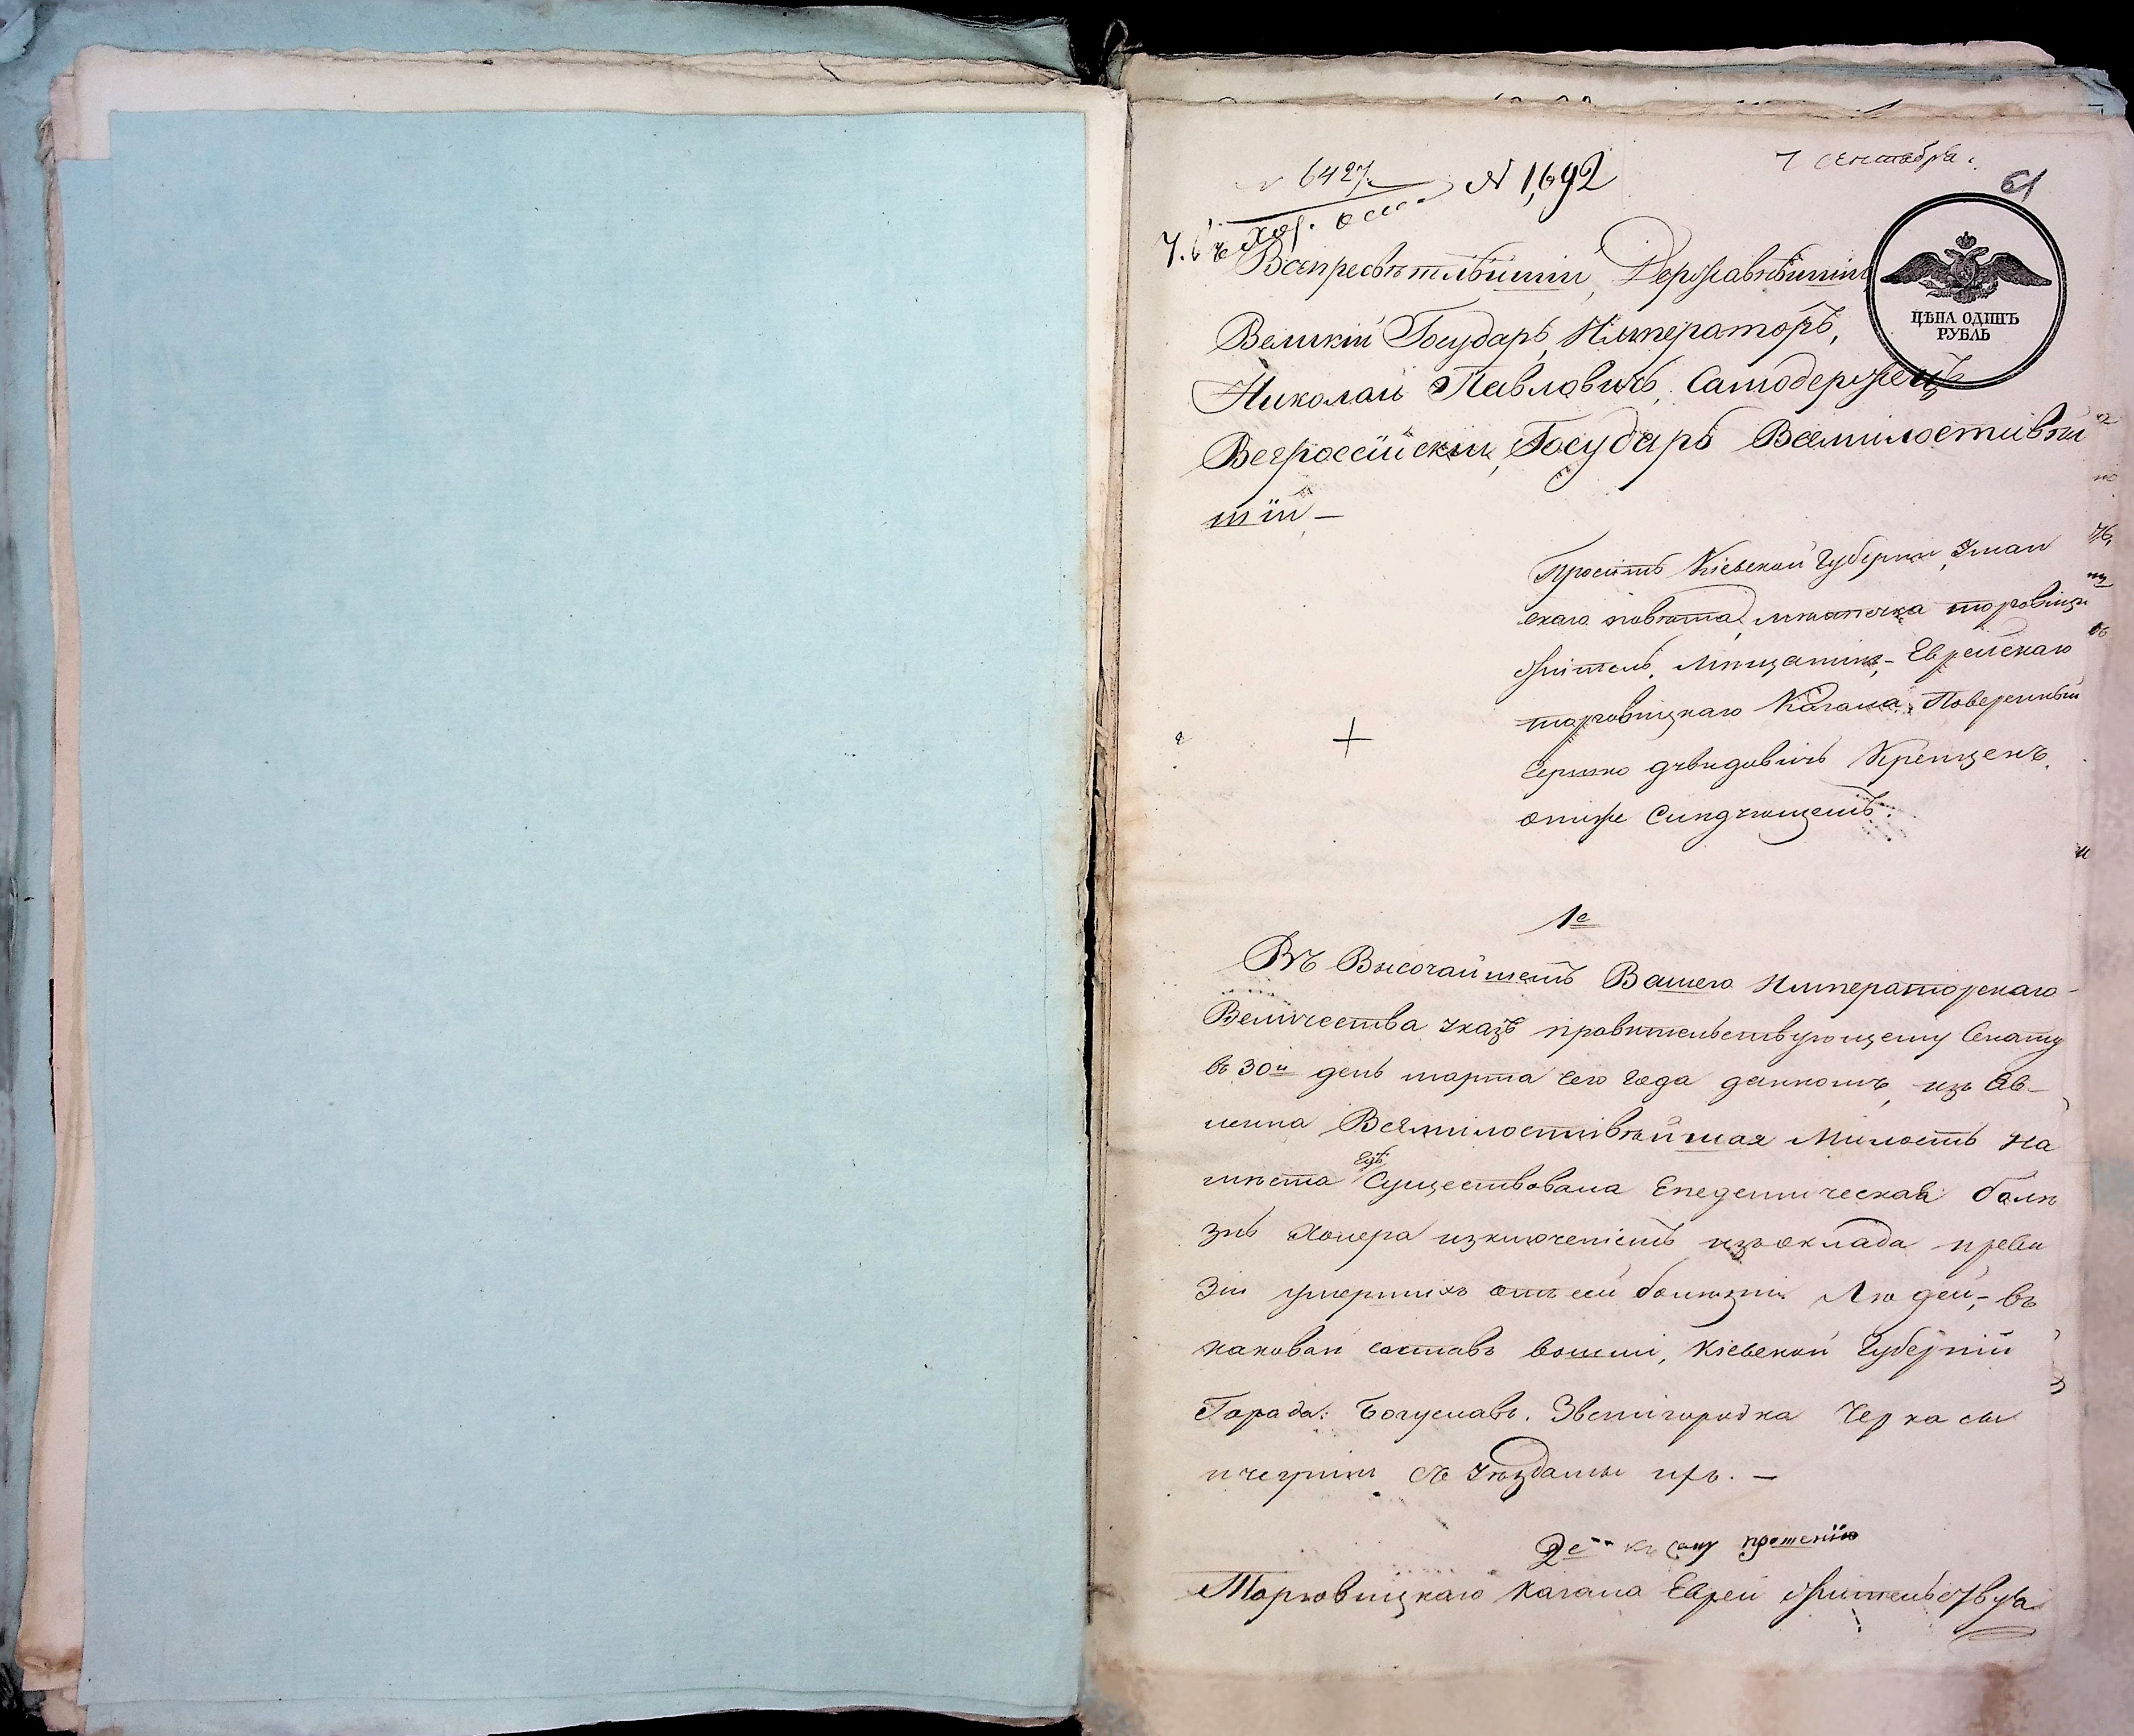 7 сентября.
61
№ 6427
№ 1,692
Всепресвѣтлѣйшій, Державнѣйшій
Великій Государь, Императоръ,
ЦѢНА ОДИНЪ
РУБЛЬ
Николай Павловичъ, Самодержецъ
Всероссійскій, Государь Всемилостивѣй
шій —
Проситъ Кіевской Губерніи, Уман
скаго повѣта, мѣстечка торговици
житель, мѣщанинъ, Еврейскаго
торговицкаго Кагала, Повереный
Гершко Давидовичъ
+
1е
Въ Высочайшемъ Вашего Императорскаго
Величества указѣ правительствующему Сенату
въ 30й день марта сего года данномъ, изъ Яв-
ленна Всемилостивѣйшая Милость на
мѣста гдѣ Существовала Епедемическая болѣ
знь Холера изключеніемъ изъ оклада преви
зіи умершихъ отъ сей болѣзни Людей, въ
каковой составъ вошли, Кіевской Губерніи
Города: Богуславъ. Звенигородка Черкасы
ичегринъ съ Уѣздами ихъ. —
2е къ сему прошенію
Торговицкаго Кагала Евреи